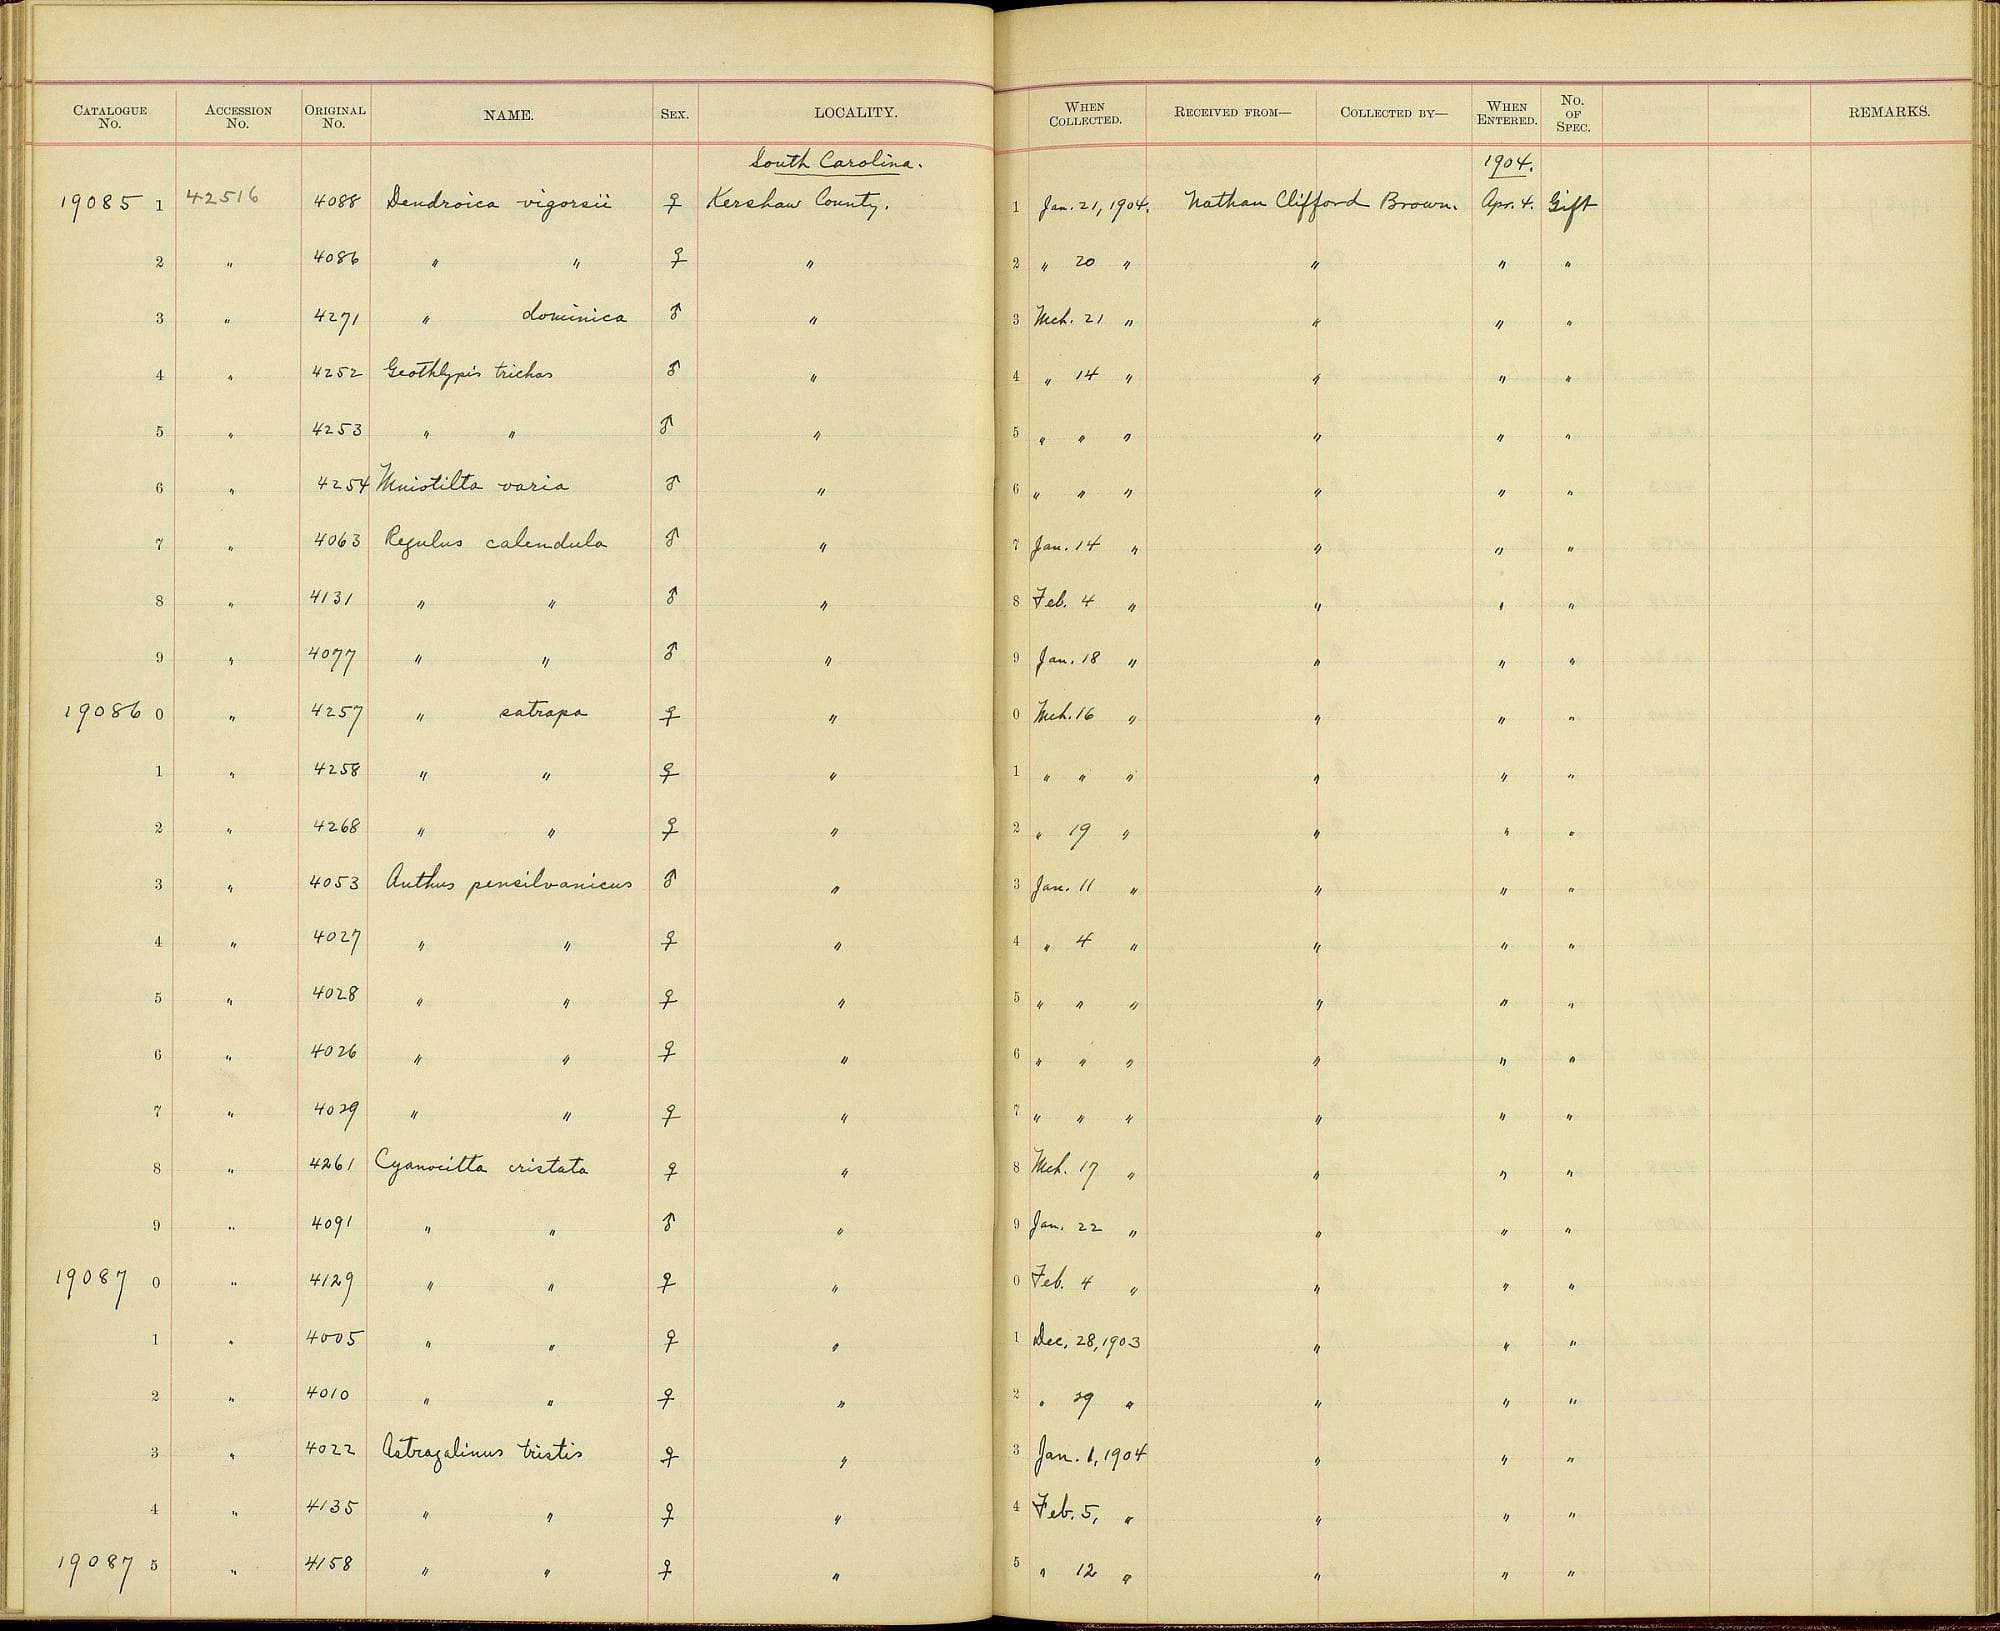 CATALOGUE No. ACCESSION No. ORIGINAL No. NAME. SEX. LOCALITY. WHEN COLLECTED. RECEIVED FROM— COLLECTED BY— WHEN ENTERED. No. OF SPEC. REMARKS.
South Carolina. 1904.
19085 1 42516 4088 Dendroica vigorsii ♀ Kershaw County. 1 Jan. 21, 1904. Nathan Clifford Brown. Apr. 4. Gift
2 " 4086 " " ♀ " 2 " 20 " " " "
3 " 4271 " dominica ♂ " 3 Mch. 21 " " " "
4 " 4252 Geothlypis trichas ♂ " 4 " 14 " " " "
5 " 4253 " " ♂ " 5 " " " " " "
6 " 4254 Mniotilta varia ♂ " 6 " " " " " "
7 " 4063 Regulus calendula ♂ " 7 Jan. 14 " " " "
8 " 4131 " " ♂ " 8 Feb. 4 " " " "
9 " 4077 " " ♂ " 9 Jan. 18 " " " "
19086 0 " 4257 " satrapa ♀ " 0 Mch. 16 " " " "
1 " 4258 " " ♀ " 1 " " " " " "
2 " 4268 " " ♀ " 2 " 19 " " " "
3 " 4053 Anthus pensilvanicus ♂ " 3 Jan. 11 " " " "
4 " 4027 " " ♀ " 4 " 4 " " " "
5 " 4028 " " ♀ " 5 " " " " " "
6 " 4026 " " ♀ " 6 " " " " " "
7 " 4029 " " ♀ " 7 " " " " " "
8 " 4261 Cyanocitta cristata ♀ " 8 Mch. 17 " " " "
9 " 4091 " " ♂ " 9 Jan. 22 " " " "
19087 0 " 4129 " " ♀ " 0 Feb. 4 " " " "
1 " 4005 " " ♀ " 1 Dec. 28, 1903 " " "
2 " 4010 " " ♀ " 2 " 29 " " " "
3 " 4022 Astragalinus tristis ♀ " 3 Jan. 1, 1904 " " "
4 " 4135 " " ♀ " 4 Feb. 5, " " " "
19087 5 " 4158 " " ♀ " 5 " 12 " " " "